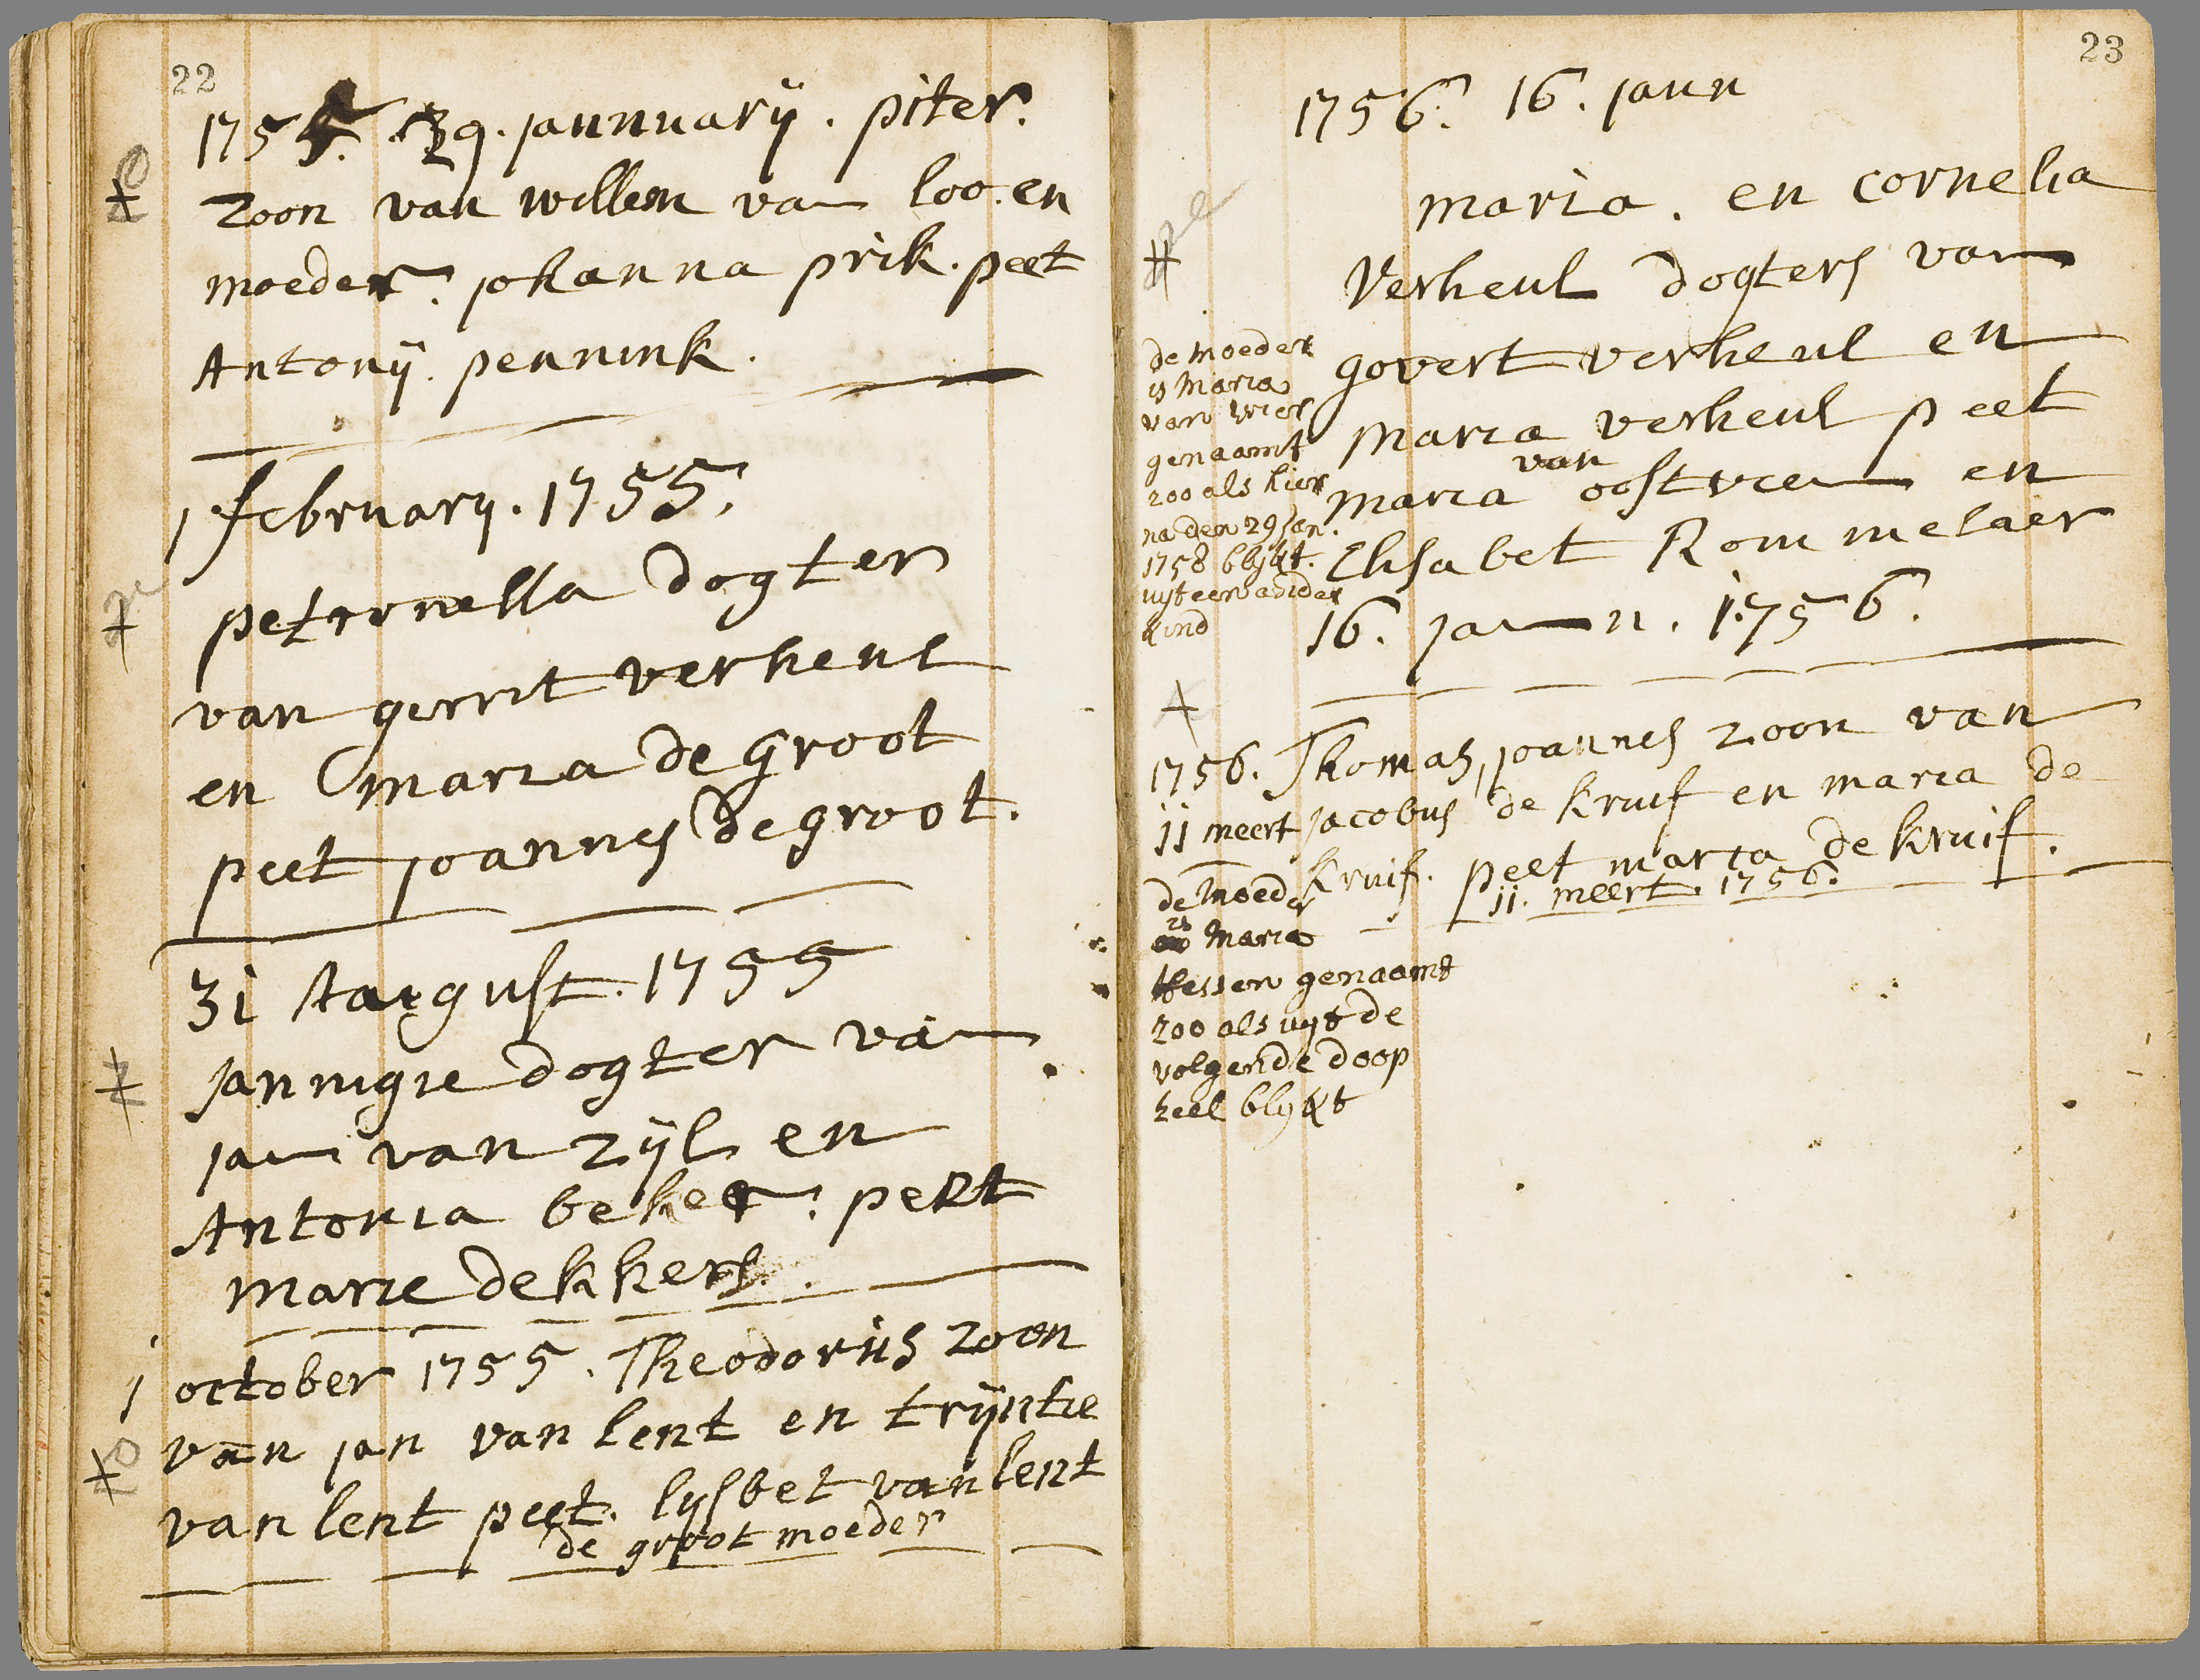 22
1755. 29. jannuarij. piter.
zoon van willem van loo. en
moeder. johanna prik. peet
Antonij. pennink.
1 february. 1755.
petronella dogter
van gerrit verheul
en maria de groot
peet joannes de groot.
31 Augúst. 1755
jannigie dogter van
jan van zijl en
Antonia beker. peet
marie dekkers.
1 october 1755. Theodorus zoon
van jan van lent en trijntie
van lent peet. lijsbet van lent
de groot moeder
23
1756. 16. jann
maria. en cornelia
Verheul dogters van
govert verheul en
maria verheul peet
maria van oostveen en
Elisabet Rommelaer
16. jann. 1756.
de moeder
is Maria
van vliet
genaamt
zoo als hier
na den 29 Jan.
1758 blijkt.
uijt een ander
kind
1756. Thomas, joannes zoon van
11 meert jacobus de kruif en maria de
kruif. peet maria de kruif.
11. meert. 1756.
de Moeder
is Maria
Hessen genaamt
zoo als uijt de
volgende doop
zeel blijkt